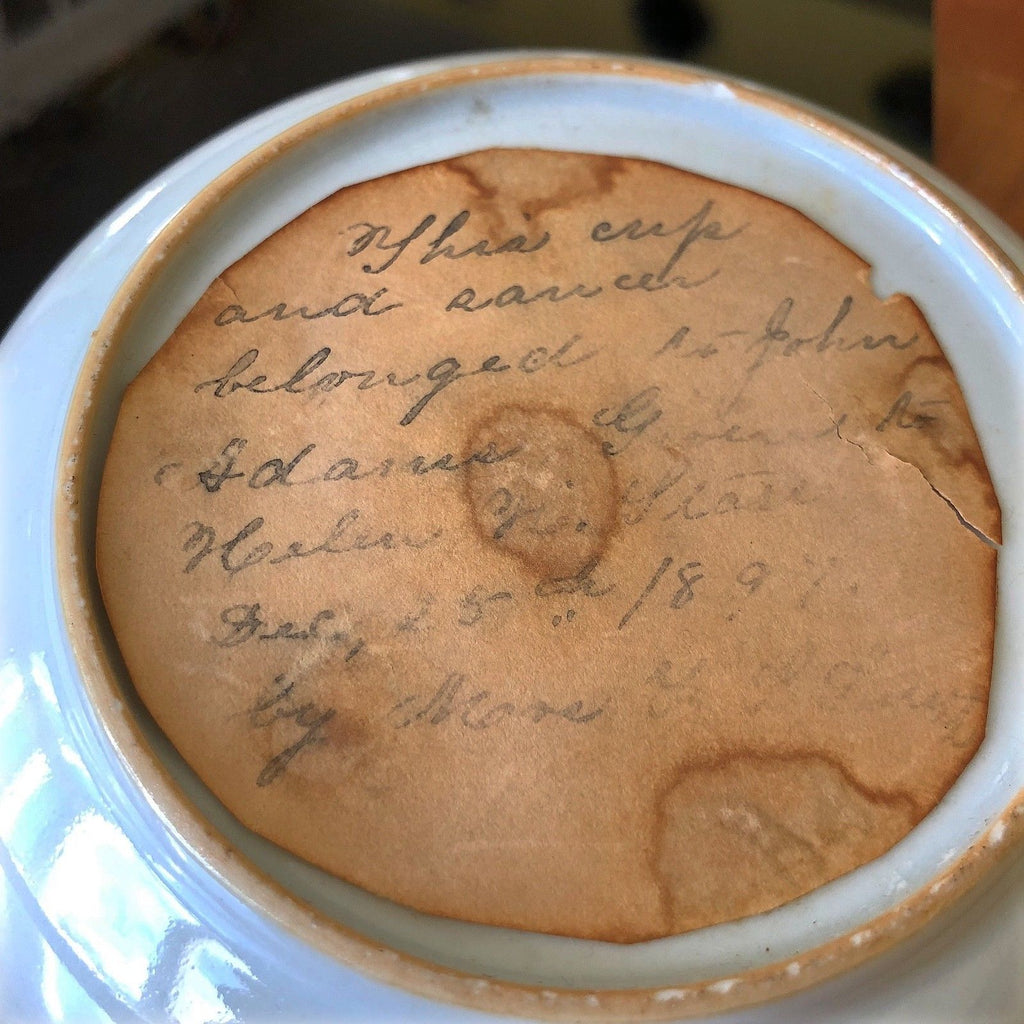 This cup
and saucer
belonged to John
Adams Given to
Helen
Dec, 25th 189
by Mrs